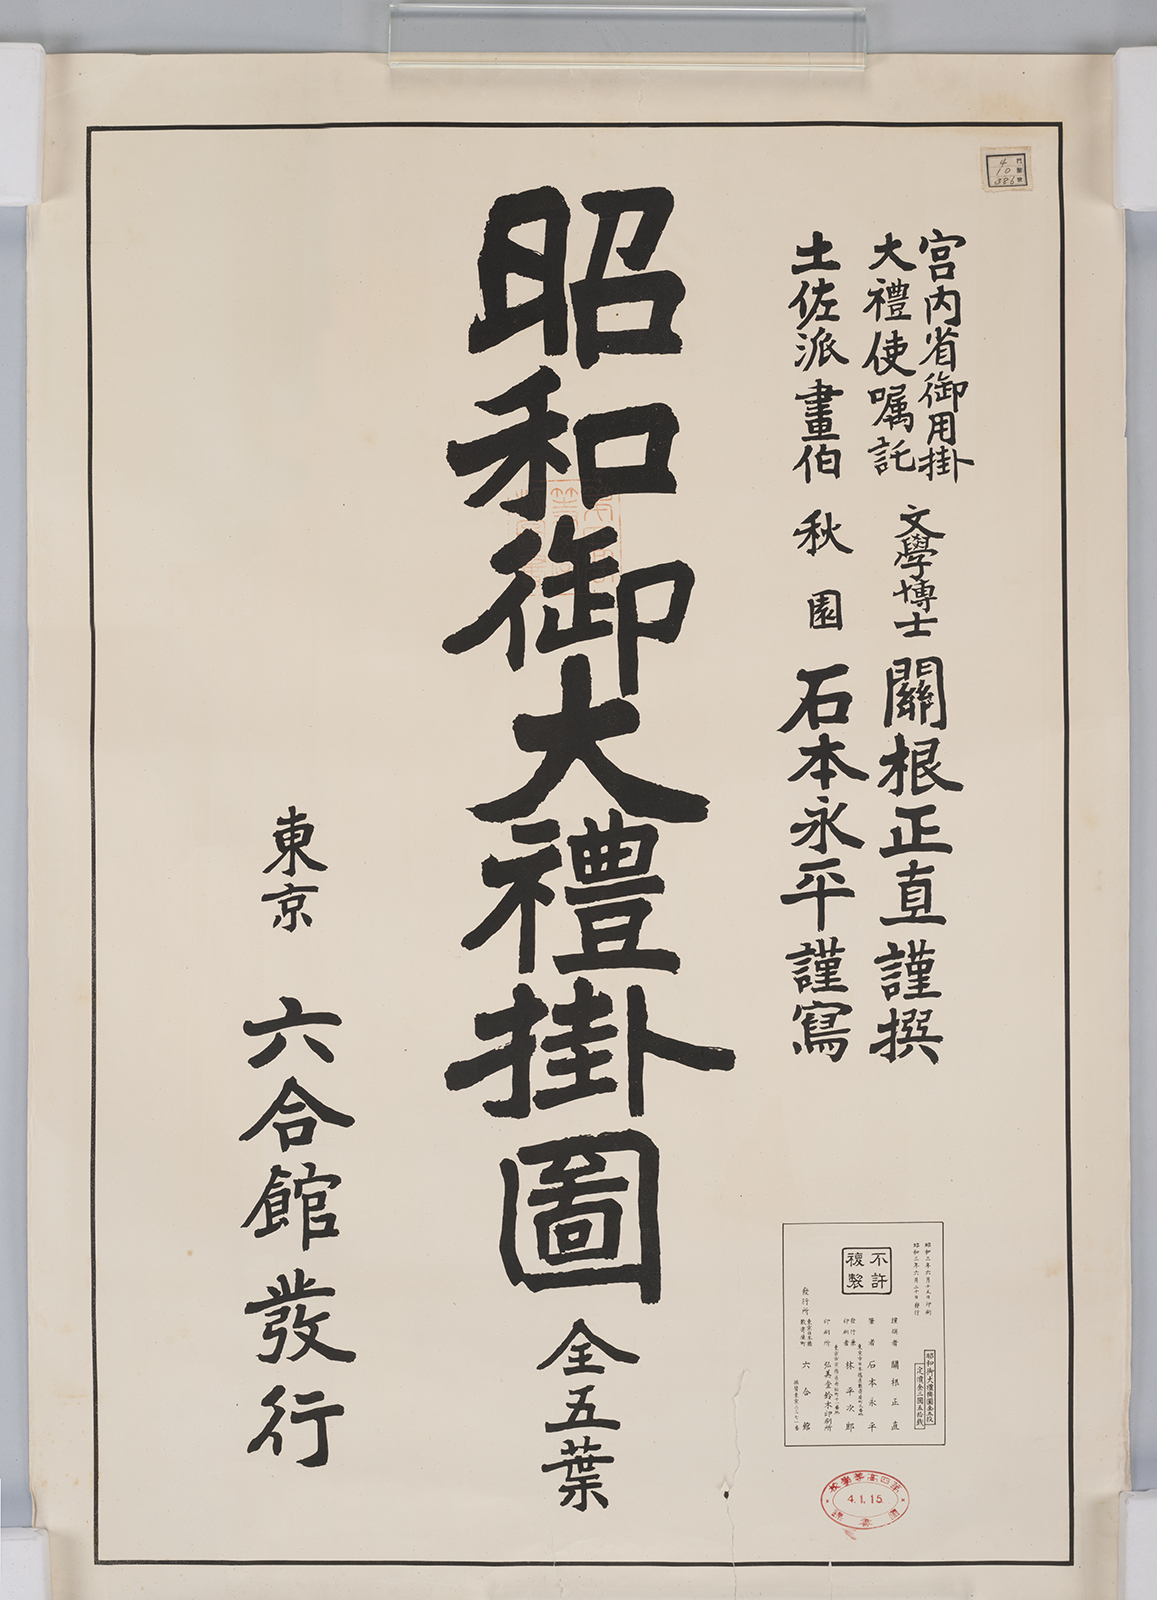 宮内省御用掛
大禮使嘱託
文學博士 關根正直謹撰
土佐派畫伯 秋園 石本永平謹寫
昭和御大禮掛圖 全五葉
東京 六合館發行
4
10
386
昭和三年六月十五日印刷
昭和三年六月二十日發行
昭和御大禮掛圖全五枚
定價金三圓五拾錢
不許
複製
撰構者 關根正直
筆者 石本永平
發行兼
印刷者 林平次郎
印刷所 弘美堂鈴木印刷所
發行所 六合館
第四高等學校
4.1.15
圖書課